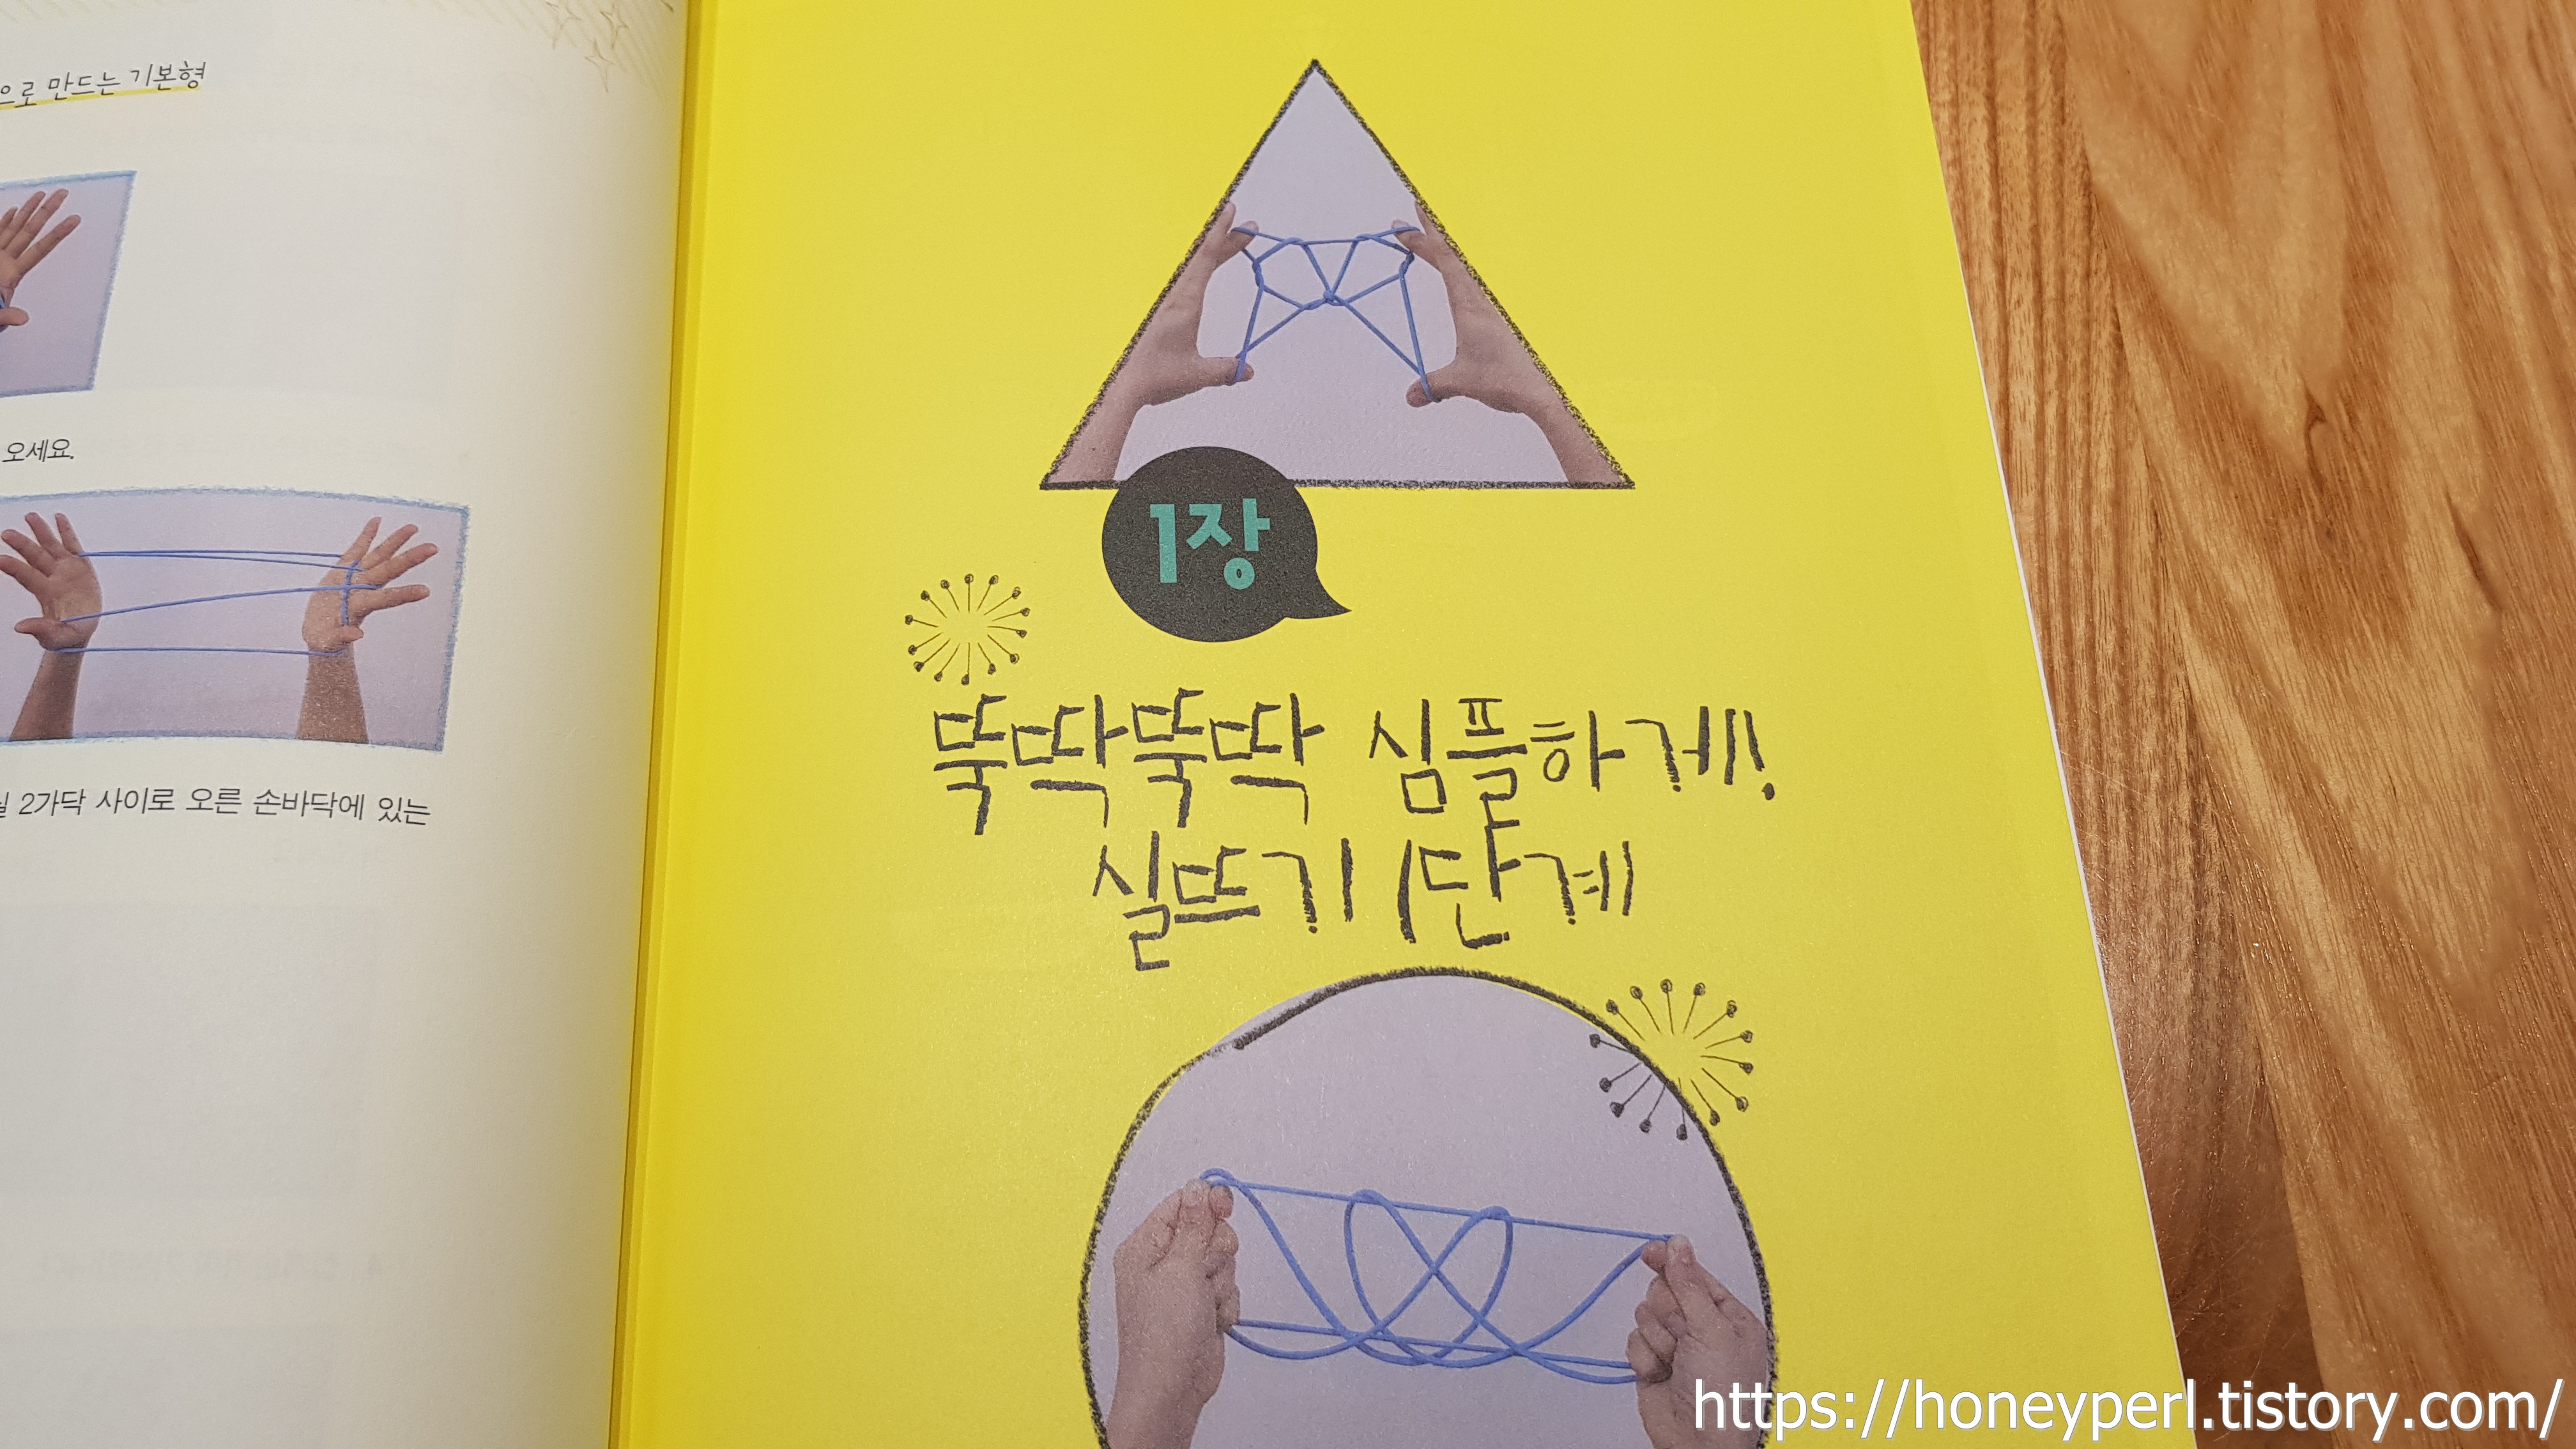 으로 만드는 기본형
오세요.
2가닥 사이로 오른 손바닥에 있는
1장
뚝딱뚝딱 심플하게!
실뜨기 1단계
https://honeyperl.tistory.com/